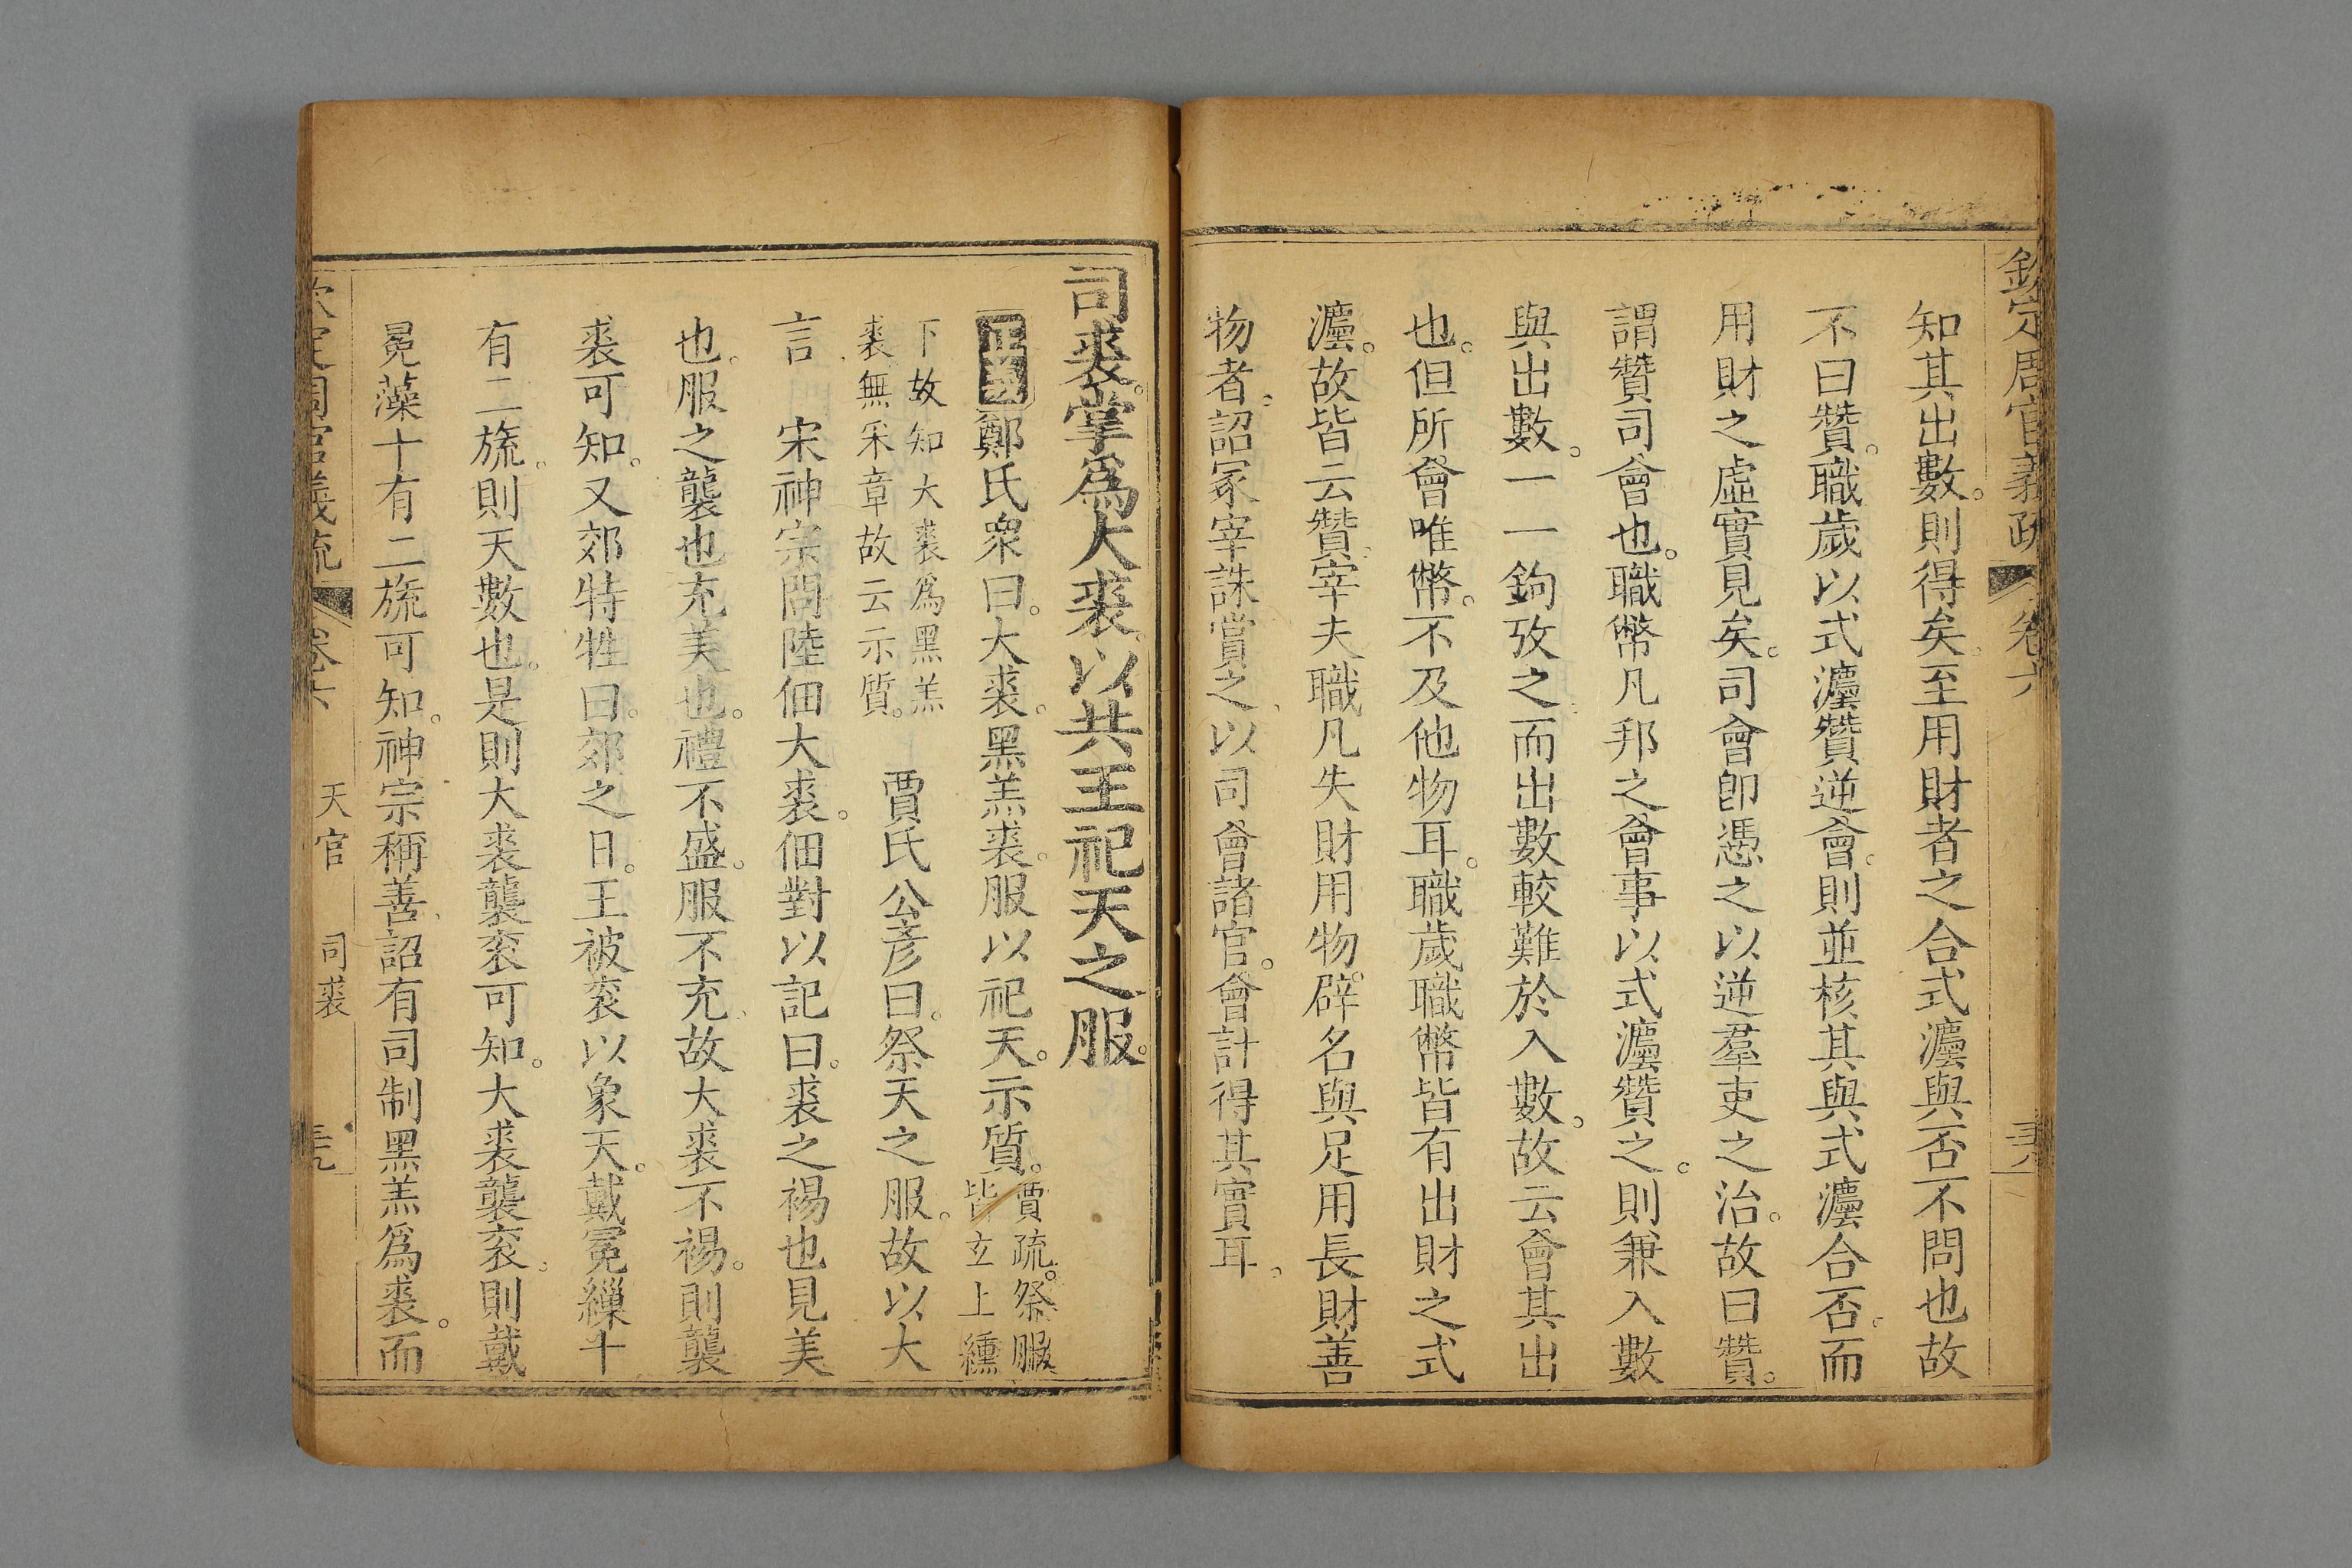 欽定周官義疏 卷六
知其出數。則得矣。至用財者之合式灋與否不問也故
不曰贊。職歲以式灋贊逆會。則並核其與式灋合否。而
用財之虛實見矣。司會卽憑之以逆羣吏之治。故曰贊。
謂贊司會也。職幣凡邦之會事以式灋贊之。則兼入數
與出數。一一鉤攷之。而出數較難於入數。故云會其出
也。但所會唯幣。不及他物耳。職歲職幣皆有出財之式
灋。故皆云贊。宰夫職凡失財用物。辟名與足用長財善
物者。詔冢宰誅賞之。以司會諸官。會計得其實耳。
司裘。掌爲大裘。以共王祀天之服。
正義鄭氏衆曰。大裘。黑羔裘。服以祀天。示質。賈疏。祭服
皆玄上纁
下故知大裘爲黑羔
裘無采章故云示質。 賈氏公彥曰。祭天之服。故以大
言。 宋神宗問陸佃大裘。佃對以記曰。裘之裼也見美
也。服之襲也充美也。禮不盛。服不充。故大裘不裼。則襲
裘可知。又郊特牲曰。郊之日。王被袞以象天。戴冕繅十
有二旒。則天數也。是則大裘襲袞可知。大裘襲袞。則戴
冕藻十有二旒可知。神宗稱善。詔有司制黑羔爲裘。而
欽定周官義疏 卷六 天官 司裘